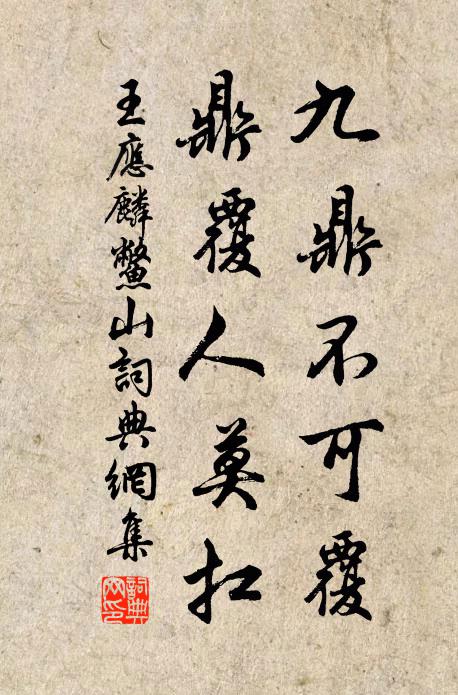 九鼎不可覆
鼎覆人莫扛
王應麟鱉山詞典網集
詞典网印